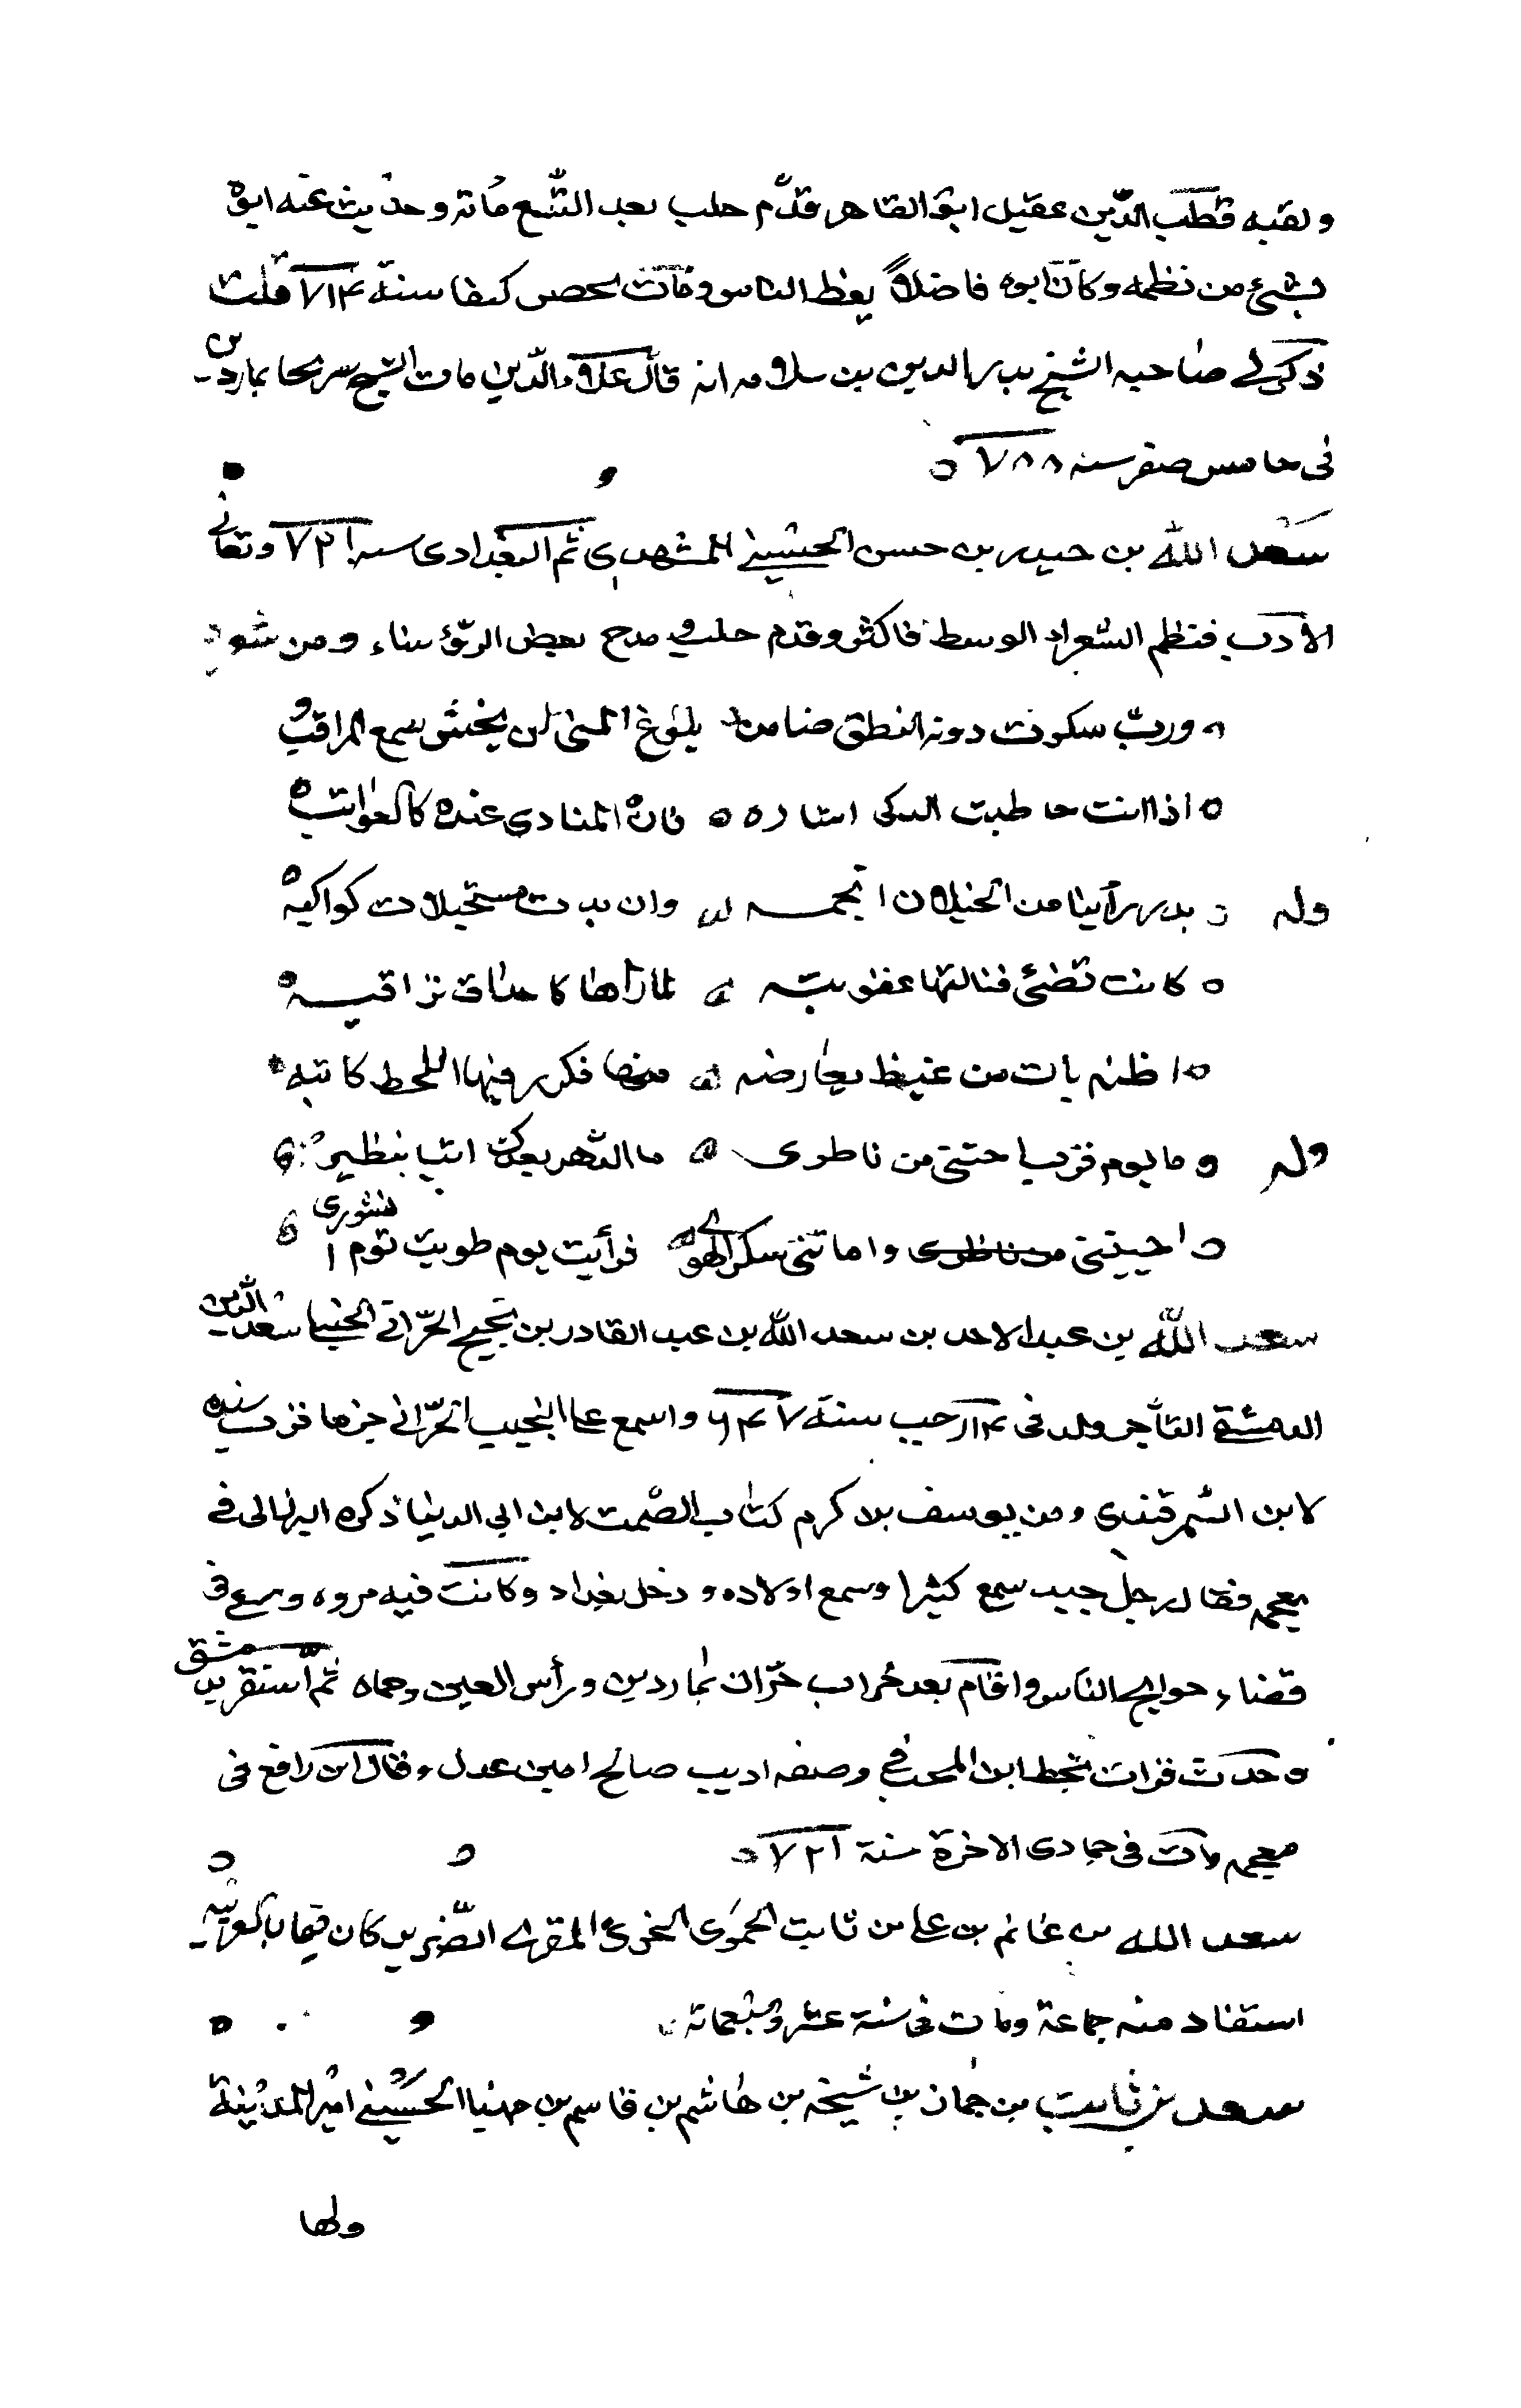 ولقبه قطب الدين عقيل ابو القاهر قدم حلب بعد التسع مائة وحدث عنه ابوه
بشيء من نظمه وكان ابوه فاضلاً يعظ الناس ومات بحصن كيفا سنة ٧١٤ قلت
ذكر لي صاحبه الشيخ بدر الدين بن سلامه انه قال علاء الدين مات الشيخ سريحا بماردين
في خامس صفر سنه ٧٨٨
سعد الله بن حيدر بن حسن الحسيني المشهدي ثم البغدادي سنه ٧٣١ وتعانى
الادب فنظم الشعراء الوسط فاكثر وقدم حلب ومدح بعض الرؤساء ومن شعره
ورب سكوت دونه النطق ضامن بلوغ المنى لمن يخشى سمع المراقب
اذا انت خاطبت الذكي اشاره فان المنادى عنده كالعواتب
وله بدر رأينا من الخيلان انجمه وان بدت مستحيلات كواكبه
كانت تضئ فنالتها عقوبته لما رآها كاحداق تراقبه
اظنه بات من غيظ يعارضه فكرر فيها اللحظ كاتبه
وله وما يوم قرب احتني من ناظري ما الدهر بعدك اتيا بنظير
احييتني من ناظري واماتني سكر الهوى فرأيت يوم طويت يوم نشوري
سعد الله بن عبد الاحد بن سعد الله بن عبد القادر بن نجيح الحراني الحنبلي سعد الدين
الدمشقي التاجر ولد في ١٤ رجب سنة ٦٤٧ واسمع على النجيب الحراني جزءا قرب سنده
لابن السمرقندي ومن يوسف بن كرم كتاب الصمت لابن ابي الدنيا ذكره البرزالي في
معجمه فقال رجل جيد سمع كثيرا وسمع اولاده ودخل بغداد وكانت فيه مروه وسعى في
قضاء حوايج الناس واقام بعد خراب حران بماردين ورأس العين وحماه ثم استقر بدمشق
وحدث قرات بخط ابن المحب وصفه اديب صالح امين عدل وقال ابن رافع في
معجمه مات في جمادى الاخرة سنة ٧٢١
سعد الله بن غانم بن علي بن ثابت الحموي النحوي المقرى الضرير كان قيما بالعربية
استفاد منه جماعة ومات في سنة عشر وسبعمائة
سعد بن ثابت بن جماز بن شيحه بن هاشم بن قاسم بن مهنا الحسيني امير المدينة
ولها